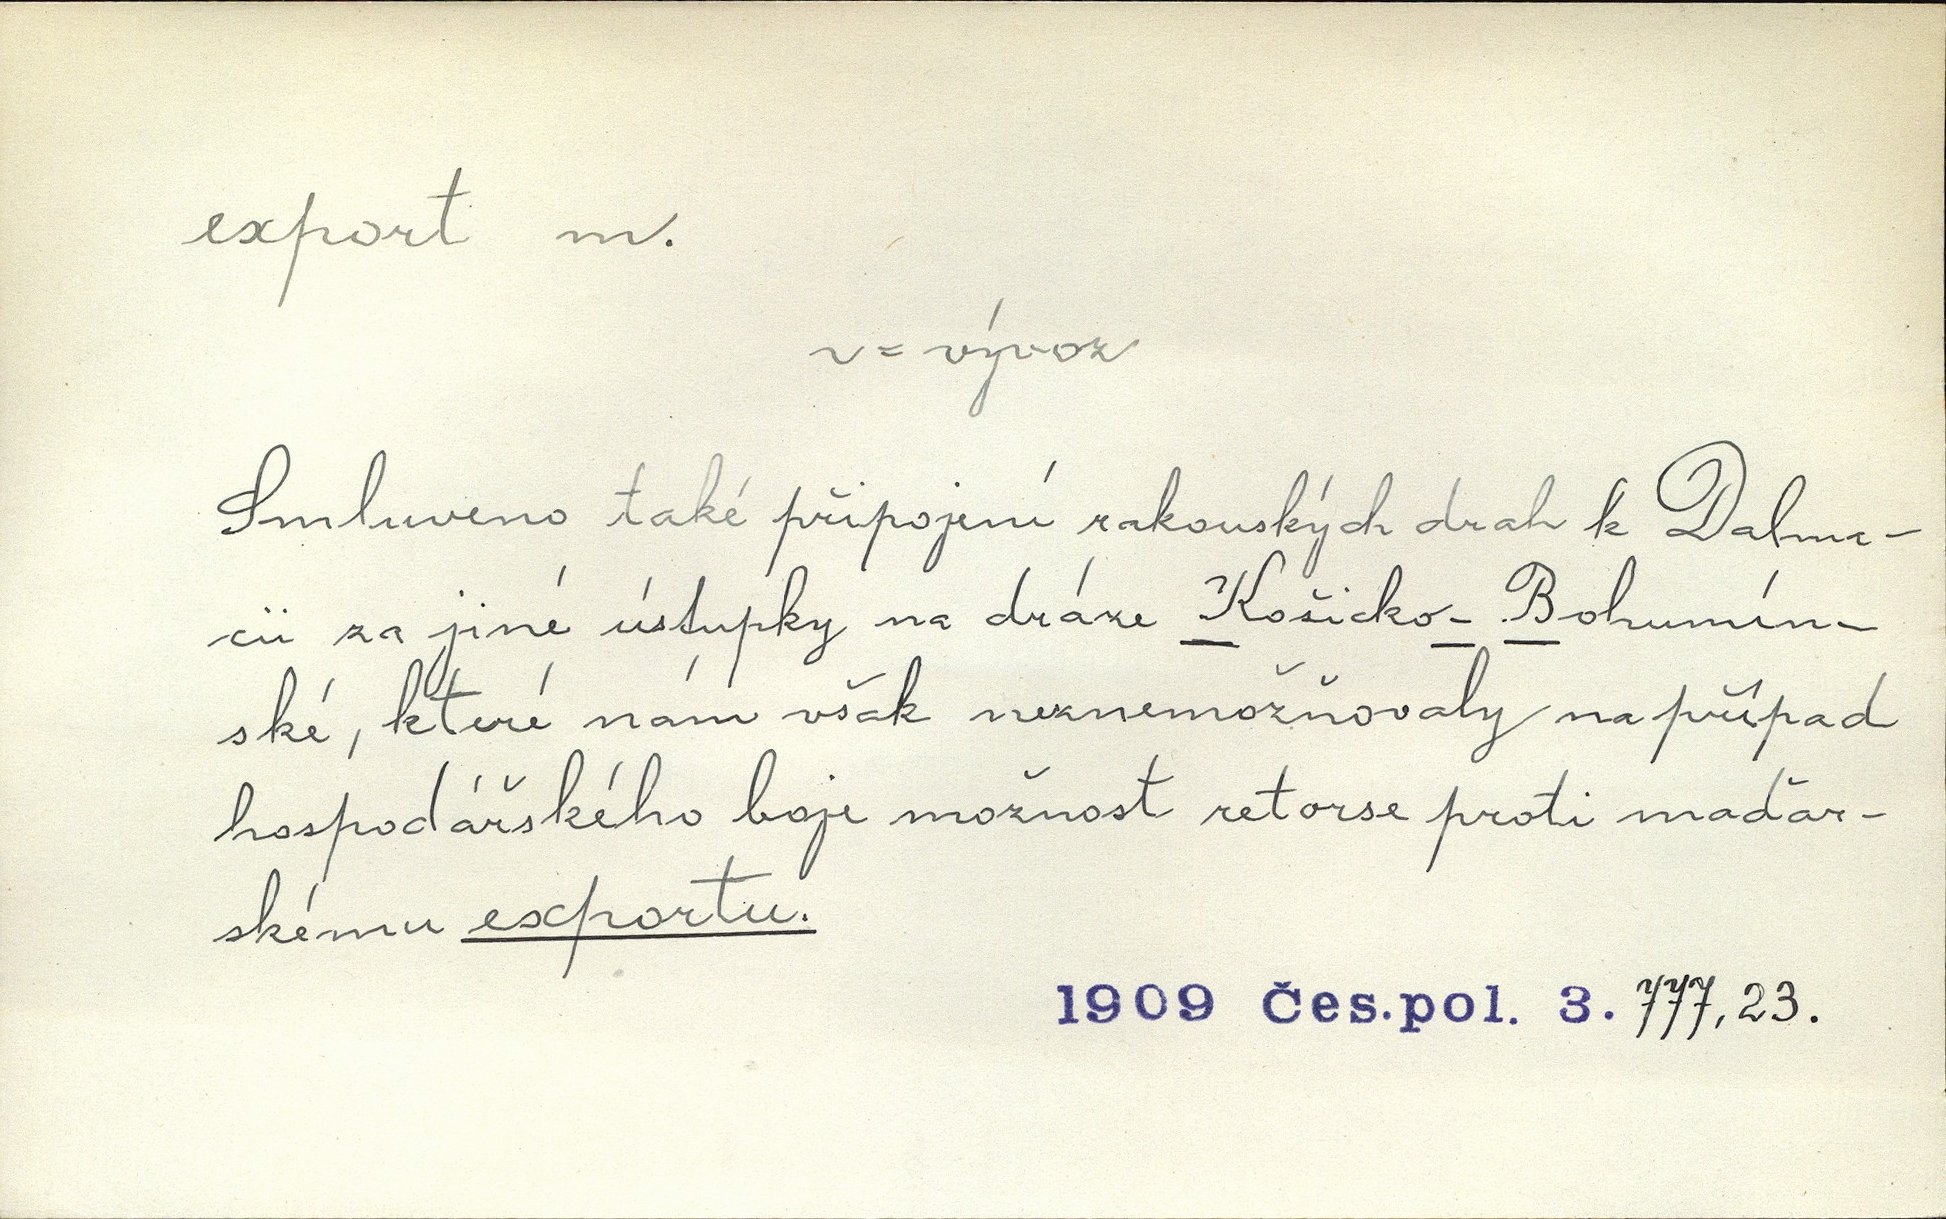 export m.
v = vývoz
Smluveno také připojení rakouských drah k Dalma-
cii za jiné ústupky na dráze Košicko-Bohumín-
ské, které nám však neznemožňovaly na případ
hospodářského boje možnost retorse proti maďar-
skému exportu.
1909 Čes.pol. 3. 777,23.